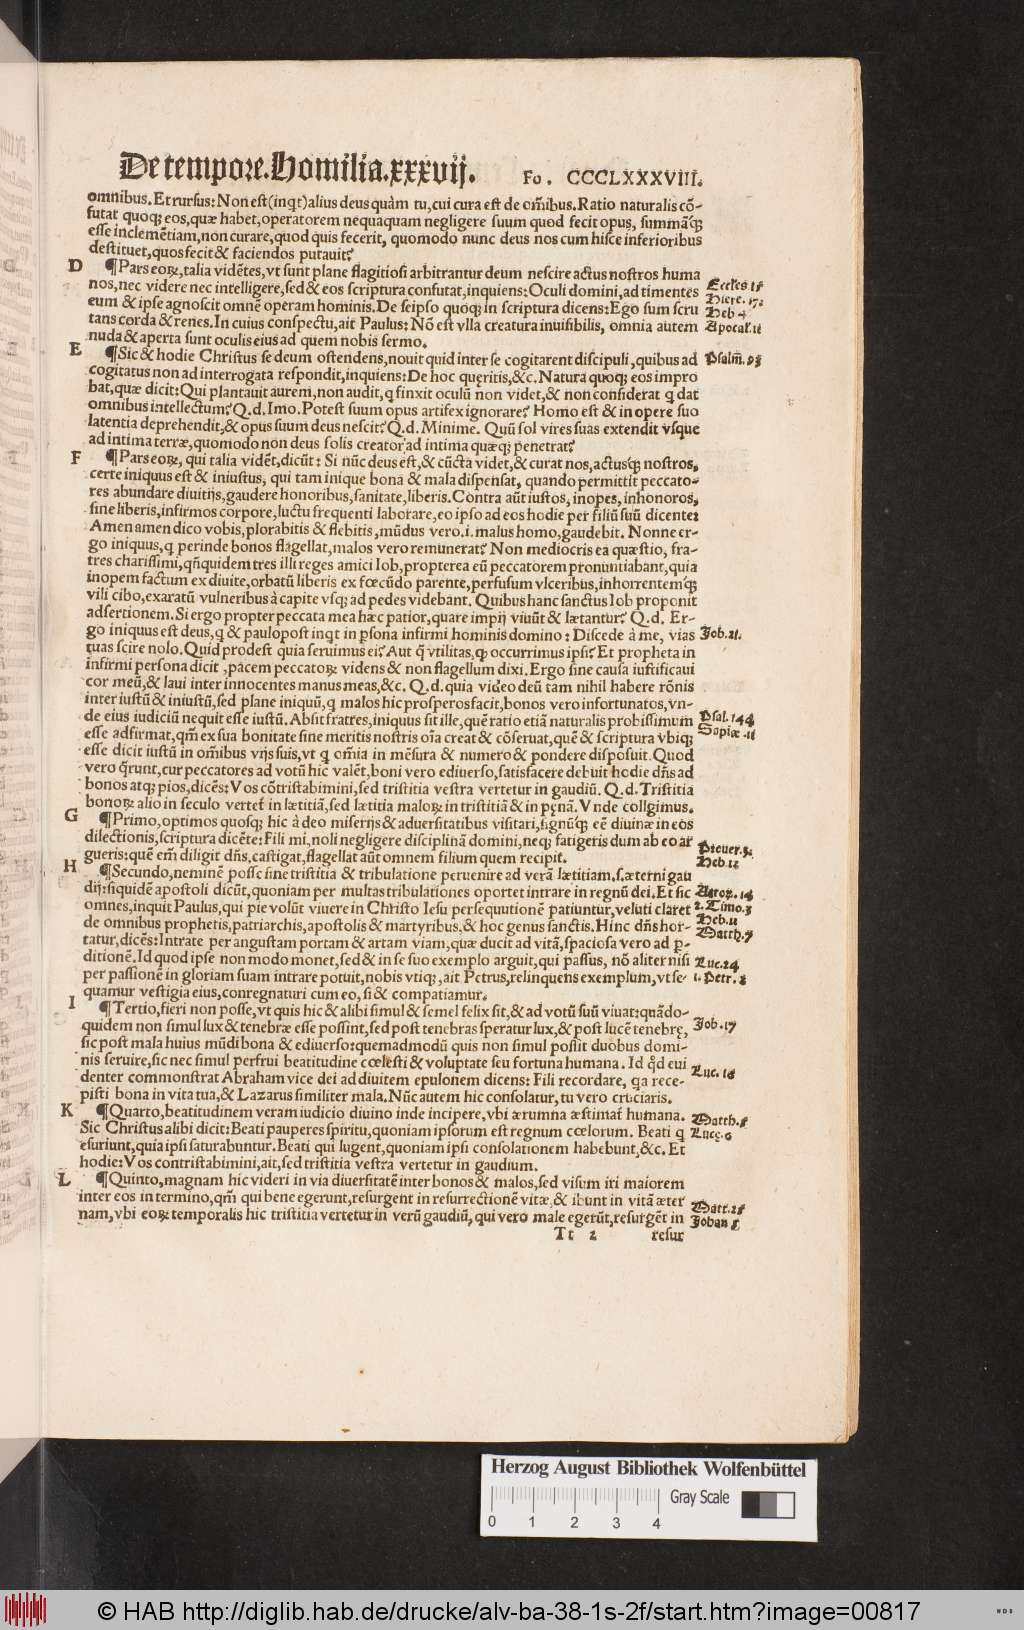 De tempore. Homilia. xxxvij. Fo. CCCLXXXVIII.
omnibus. Et rursus: Non est (inqt) alius deus quàm tu, cui cura est de om̃ibus. Ratio naturalis cõ-
futat quoqꝫ eos, quæ habet, operatorem nequaquam negligere suum quod fecit opus, summãqꝫ
esse inclemẽtiam, non curare, quod quis fecerit, quomodo nunc deus nos cum hisce inferioribus
destituet, quos fecit & faciendos putauit?
D ¶Pars eoꝝ, talia vidẽtes, vt sunt plane flagitiosi arbitrantur deum nescire actus nostros huma
nos, nec videre nec intelligere, sed & eos scriptura confutat, inquiens: Oculi domini, ad timentes Eccles.15
eum & ipse agnoscit omnẽ operam hominis. De seipso quoqꝫ in scriptura dicens: Ego sum scru Hiere.17.
tans corda & renes. In cuius conspectu, ait Paulus: Nõ est vlla creatura inuisibilis, omnia autem Heb 4
nuda & aperta sunt oculis eius ad quem nobis sermo. Apocal.11
E ¶Sic & hodie Christus se deum ostendens, nouit quid inter se cogitarent discipuli, quibus ad Psalm̃.93
cogitatus non ad interrogata respondit, inquiens: De hoc quęritis, &c. Natura quoqꝫ eos impro
bat, quæ dicit: Qui plantauit aurem, non audit, q finxit oculũ non videt, & non considerat q dat
omnibus intellectum? Q. d. Imo. Potest suum opus artifex ignorare? Homo est & in opere suo
latentia deprehendit, & opus suum deus nescit? Q. d. Minime. Quũ sol vires suas extendit vsque
ad intima terræ, quomodo non deus solis creator ad intima quæqꝫ penetrat?
F ¶Pars eoꝝ, qui talia vidẽt, dicũt: Si nũc deus est, & cũcta videt, & curat nos, actusqꝫ nostros,
certe iniquus est & iniustus, qui tam inique bona & mala dispensat, quando permittit peccato-
res abundare diuitijs, gaudere honoribus, sanitate, liberis. Contra aũt iustos, inopes, inhonoros,
sine liberis, infirmos corpore, luctu frequenti laborare, eo ipso ad eos hodie per filiũ suũ dicente:
Amen amen dico vobis, plorabitis & flebitis, mũdus vero .i. malus homo, gaudebit. Nonne er-
go iniquus, q perinde bonos flagellat, malos vero remunerat? Non mediocris ea quæstio, fra-
tres charissimi, qñquidem tres illi reges amici Iob, propterea eũ peccatorem pronuntiabant, quia
inopem factum ex diuite, orbatũ liberis ex fœcũdo parente, perfusum vlceribus, inhorrentemqꝫ
vili cibo, exaratũ vulneribus à capite vsqꝫ ad pedes videbant. Quibus hanc sanctus Iob proponit
adsertionem. Si ergo propter peccata mea hæc patior, quare impij viuũt & lætantur? Q. d. Er-
go iniquus est deus, q & paulo post inqt in psona infirmi hominis domino: Discede à me, vias Job.21.
tuas scire nolo. Quid prodest quia seruimus ei? Aut q̃ vtilitas, qꝫ occurrimus ipsi? Et propheta in
infirmi persona dicit, pacem peccatoꝝ videns & non flagellum dixi. Ergo sine causa iustificaui
cor meũ, & laui inter innocentes manus meas, &c. Q. d. quia video deũ tam nihil habere rõnis
inter iustũ & iniustũ, sed plane iniquũ, q malos hic prosperos facit, bonos vero infortunatos, vn-
de eius iudiciũ nequit esse iustũ. Absit fratres, iniquus sit ille, quẽ ratio etiã naturalis probissimum Psal.144
esse adfirmat, qm̃ ex sua bonitate sine meritis nostris oĩa creat & cõseruat, quẽ & scriptura vbiqꝫ Sapiæ.11
esse dicit iustũ in om̃ibus vijs suis, vt q om̃ia in mẽsura & numero & pondere disposuit. Quod
vero q̃runt, cur peccatores ad votũ hic valẽt, boni vero ediuerso, satisfacere debuit hodie dñs ad
bonos atqꝫ pios, dicẽs: Vos cõtristabimini, sed tristitia vestra vertetur in gaudiũ. Q. d. Tristitia
bonoꝝ alio in seculo vertet̃ in lætitiã, sed lætitia maloꝝ in tristitiã & in pęnã. Vnde collgimus.
G ¶Primo, optimos quosqꝫ hic à deo miserijs & aduersitatibus visitari, signũqꝫ eẽ diuinæ in eos
dilectionis, scriptura dicẽte: Fili mi, noli negligere disciplinã domini, neqꝫ fatigeris dum ab eo ar Prouer.3.
gueris: quẽ em̃ diligit dñs, castigat, flagellat aũt omnem filium quem recipit. Heb.12
H ¶Secundo, neminẽ posse sine tristitia & tribulatione peruenire ad verã lætitiam .s. æterni gau
dij: siquidẽ apostoli dicũt, quoniam per multas tribulationes oportet intrare in regnũ dei. Et sic Actoꝝ.14
omnes, inquit Paulus, qui pie volũt viuere in Christo Iesu persequutionẽ patiuntur, veluti claret 2.Timo.3
de omnibus prophetis, patriarchis, apostolis & martyribus, & hoc genus sanctis. Hinc dñs hor- Heb.11
tatur, dicẽs: Intrate per angustam portam & artam viam, quæ ducit ad vitã, spaciosa vero ad p- Matth.7
ditionẽ. Id quod ipse non modo monet, sed & in se suo exemplo arguit, qui passus, nõ aliter nisi Luc.24
per passionẽ in gloriam suam intrare potuit, nobis vtiqꝫ, ait Petrus, relinquens exemplum, vt se- 1.Petr.2
quamur vestigia eius, conregnaturi cum eo, si & compatiamur.
I ¶Tertio, fieri non posse, vt quis hic & alibi simul & semel felix sit, & ad votũ suũ viuat: quãdo-
quidem non simul lux & tenebræ esse possint, sed post tenebras speratur lux, & post lucẽ tenebrę, Job.17
sic post mala huius mũdi bona & ediuerso: quemadmodũ quis non simul possit duobus domi-
nis seruire, sic nec simul perfrui beatitudine cœlesti & voluptate seu fortuna humana. Id qd̃ eui
denter commonstrat Abraham vice dei ad diuitem epulonem dicens: Fili recordare, qa rece- Luc.16
pisti bona in vita tua, & Lazarus similiter mala. Nũc autem hic consolatur, tu vero cruciaris.
K ¶Quarto, beatitudinem veram iudicio diuino inde incipere, vbi ærumna æstimat̃ humana.
Sic Christus alibi dicit: Beati pauperes spiritu, quoniam ipsorum est regnum cœlorum. Beati q Matth.5
esuriunt, quia ipsi saturabuntur. Beati qui lugent, quoniam ipsi consolationem habebunt, &c. Et Lucę.6
hodie: Vos contristabimini, ait, sed tristitia vestra vertetur in gaudium.
L ¶Quinto, magnam hic videri in via diuersitatẽ inter bonos & malos, sed visum iri maiorem
inter eos in termino, qm̃ qui bene egerunt, resurgent in resurrectionẽ vitæ, & ibunt in vitã æter Matt.25
nam, vbi eoꝝ temporalis hic tristitia vertetur in verũ gaudiũ, qui vero male egerũt, resurgẽt in Johan 5.
Tt 2 resur
Herzog August Bibliothek Wolfenbüttel
Gray Scale
0 1 2 3 4
© HAB http://diglib.hab.de/drucke/alv-ba-38-1s-2f/start.htm?image=00817